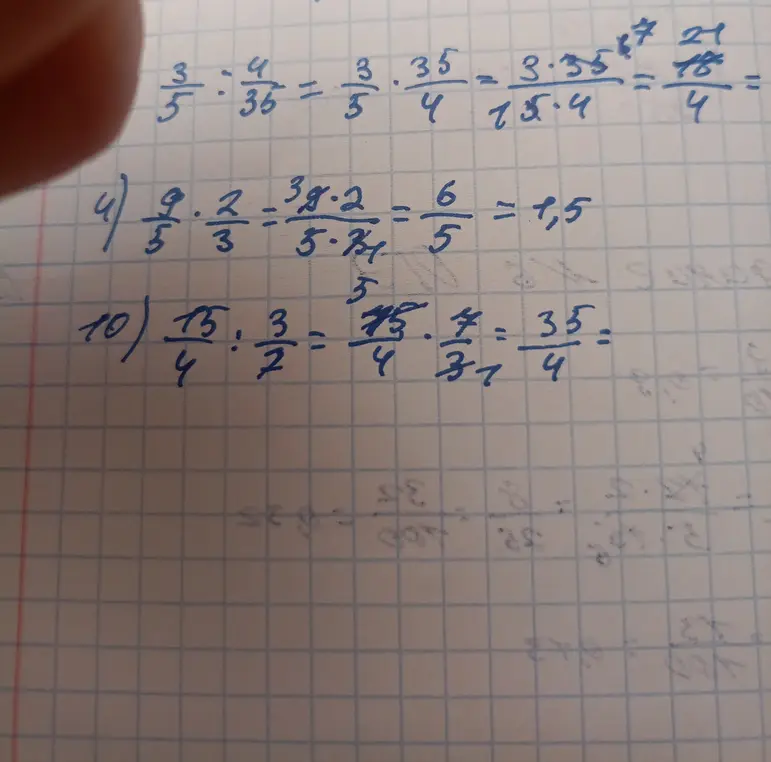 3/5 : 4/35 = 3/5 · 35/4 = 3·35 7/1 5·4 = 21/4 =
4) 9/5 · 2/3 = 3 9·2/5·3 1 = 6/5 = 1,5
10) 15/4 : 3/7 = 5 15/4 · 7/3 1 = 35/4 =